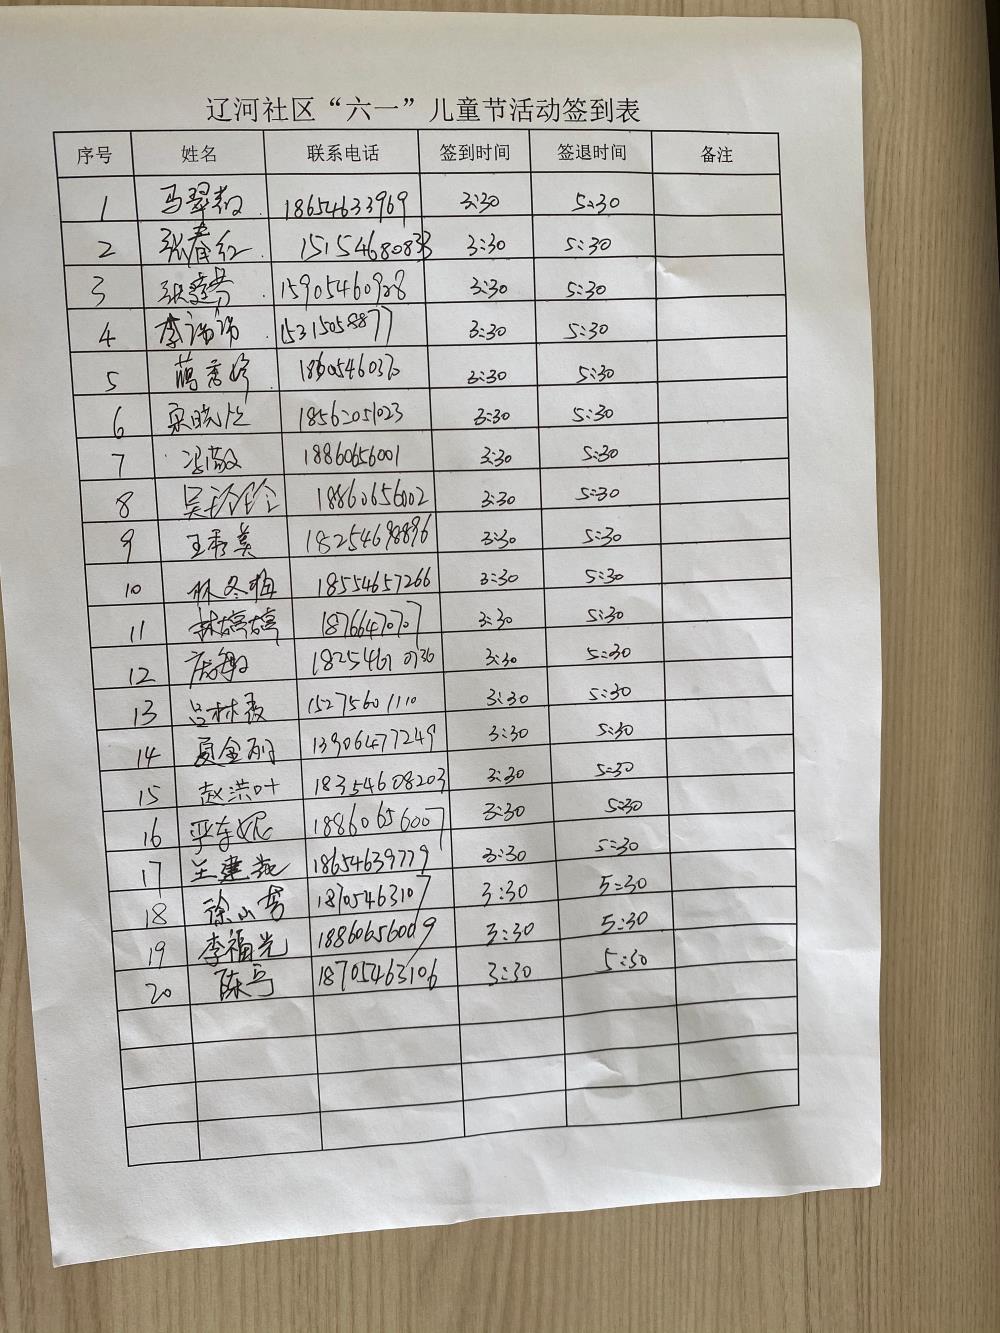 辽河社区“六一”儿童节活动签到表
序号 姓名 联系电话 签到时间 签退时间 备注
1 马翠 18654633969 3:30 5:30
2 张春红 15154680833 3:30 5:30
3 15905460928 3:30 5:30
4 李诺诺 15315058877 3:30 5:30
5 蒋秀 3:30 5:30
6 晓 18562051023 3:30 5:30
7 冯敬 18860656001 3:30 5:30
8 吴玲玲 18860656002 3:30 5:30
9 王秀美 18254698896 3:30 5:30
10 林冬梅 18554657266 3:30 5:30
11 林婷婷 3:30 5:30
12 18254610736 3:30 5:30
13 吕林 15275601110 3:30 5:30
14 夏金 13906477249 3:30 5:30
15 赵洪叶 18354608203 3:30 5:30
16 18860656007 3:30 5:30
17 王建 18654639779 3:30 5:30
18 徐山 18705463107 3:30 5:30
19 李福光 18860656009 3:30 5:30
20 陈 18705463106 3:30 5:30